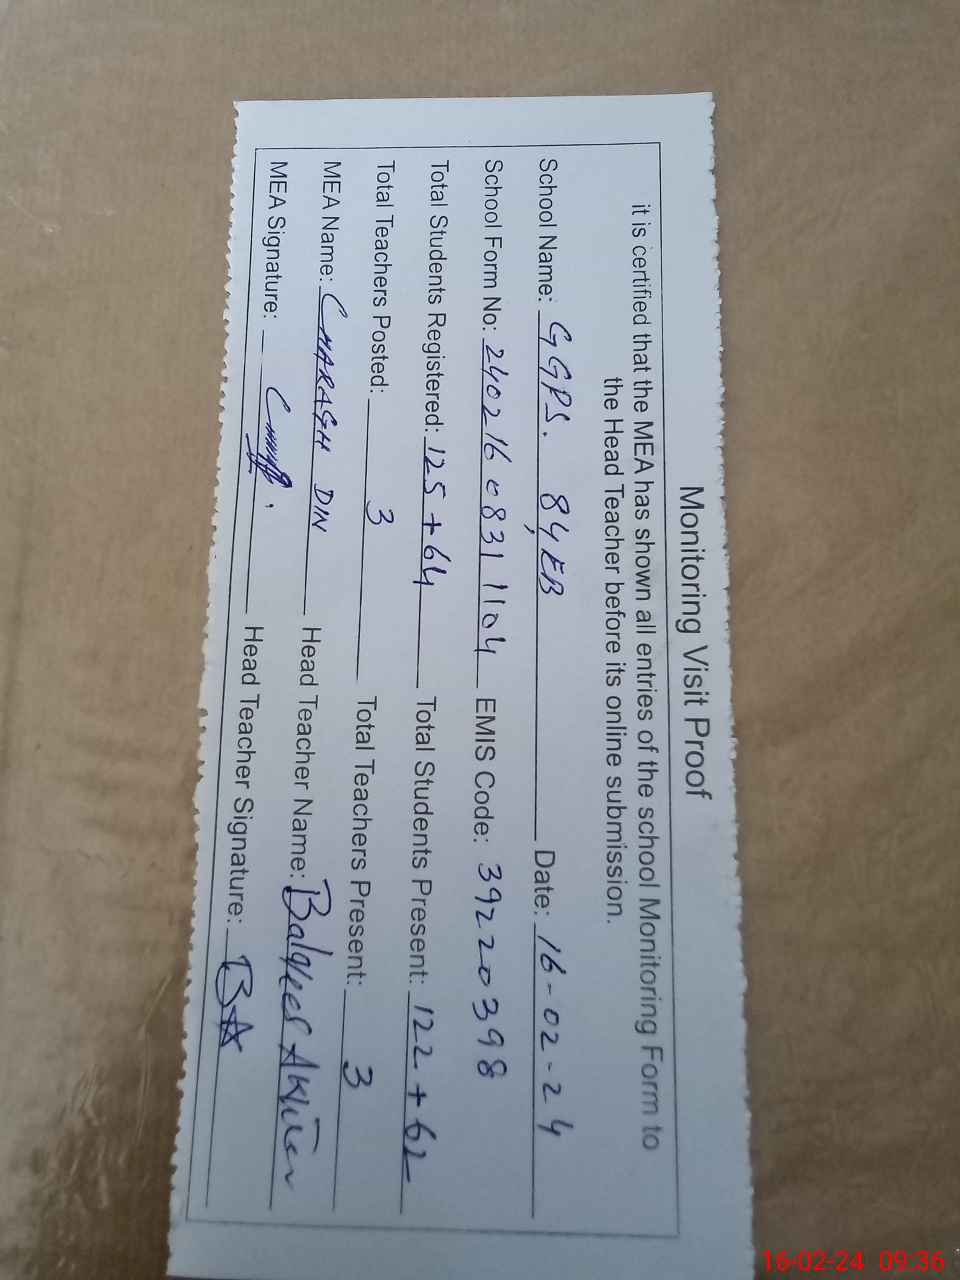 Monitoring Visit Proof
it is certified that the MEA has shown all entries of the school Monitoring Form to
the Head Teacher before its online submission.
School Name: GGPS. 84/EB Date: 16-02-24
School Form No: 240216 0831 1104 EMIS Code: 39220398
Total Students Registered: 125+64 Total Students Present: 122+62
Total Teachers Posted: 3 Total Teachers Present: 3
MEA Name: CHARAGH DIN Head Teacher Name: Balqees Akhter
MEA Signature: Head Teacher Signature: BA
16-02-24 09:36